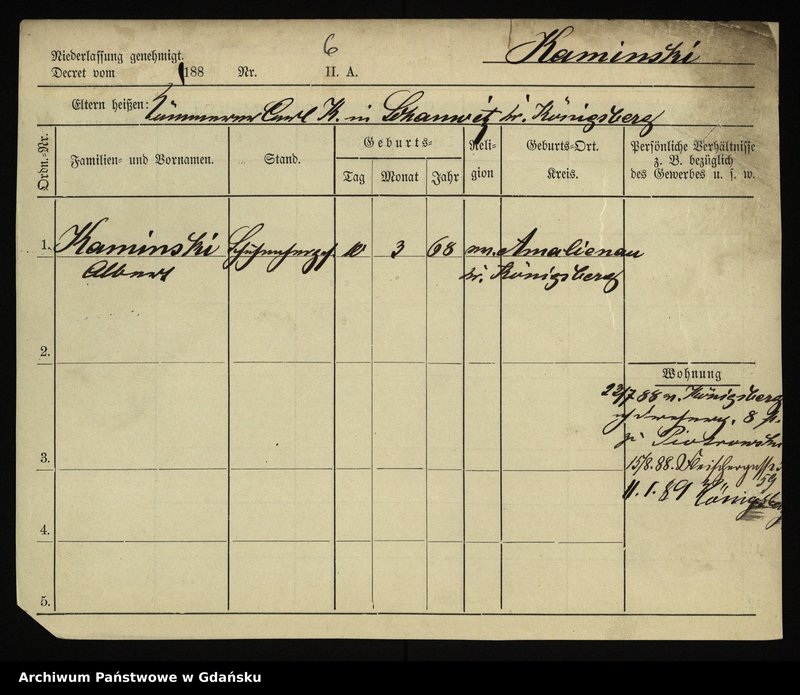 6
Kaminski
Niederlassung genehmigt.
Decret vom 188 Nr. II. A.
Eltern heißen: Kämmerer Carl K. in Schanwitz Kr. Königsberg
Ordn.-Nr.
Familien- und Vornamen.
Stand.
Geburts-
Tag
Monat
Jahr
Reli-
gion
Geburts-Ort.
Kreis.
Persönliche Verhältnisse
z. B. bezüglich
des Gewerbes u. s. w.
1. Kaminski 10 3 68 Amalienau
Albert Kr. Königsberg
2.
Wohnung
23/7 88 v. Königsberg
8
Piotrowski
3.
15/8. 88. Fleischergasse
59
11. 1. 89 Königsberg
4.
5.
Archiwum Państwowe w Gdańsku